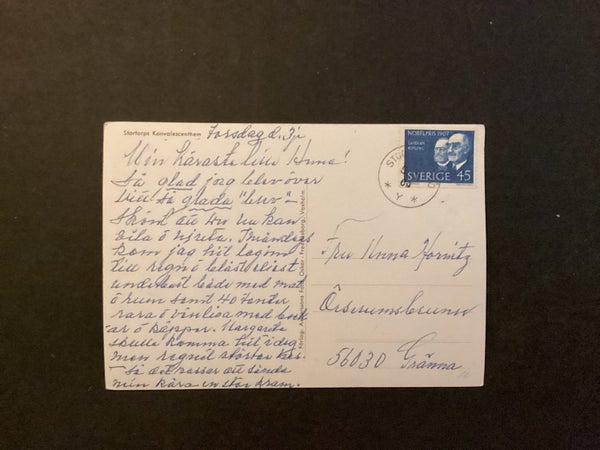 Stortorps Konvalescenthem
Torsdag d.
Min käraste lilla Anna!
Så glad jag blev över
ditt så glada "brev"
Skönt att du nu kan
vila o njuta. I måndags
kom jag hit
till regn o blåst
underbart både med mat
o rum samt 40 tanter
rara o vänliga med
ar o käppar. Margareta
skulle komma till idag
men regnet störtar
Så det passar att sända
min kära en stor kram.
Förlag: Foto, Oskar Fredriksborg, Vaxholm.
NOBELPRIS 1907
LAVERAN
KIPLING
SVERIGE 45
STO
Y
Fru Anna Horvitz
Örserumsbrunn
56030 Gränna